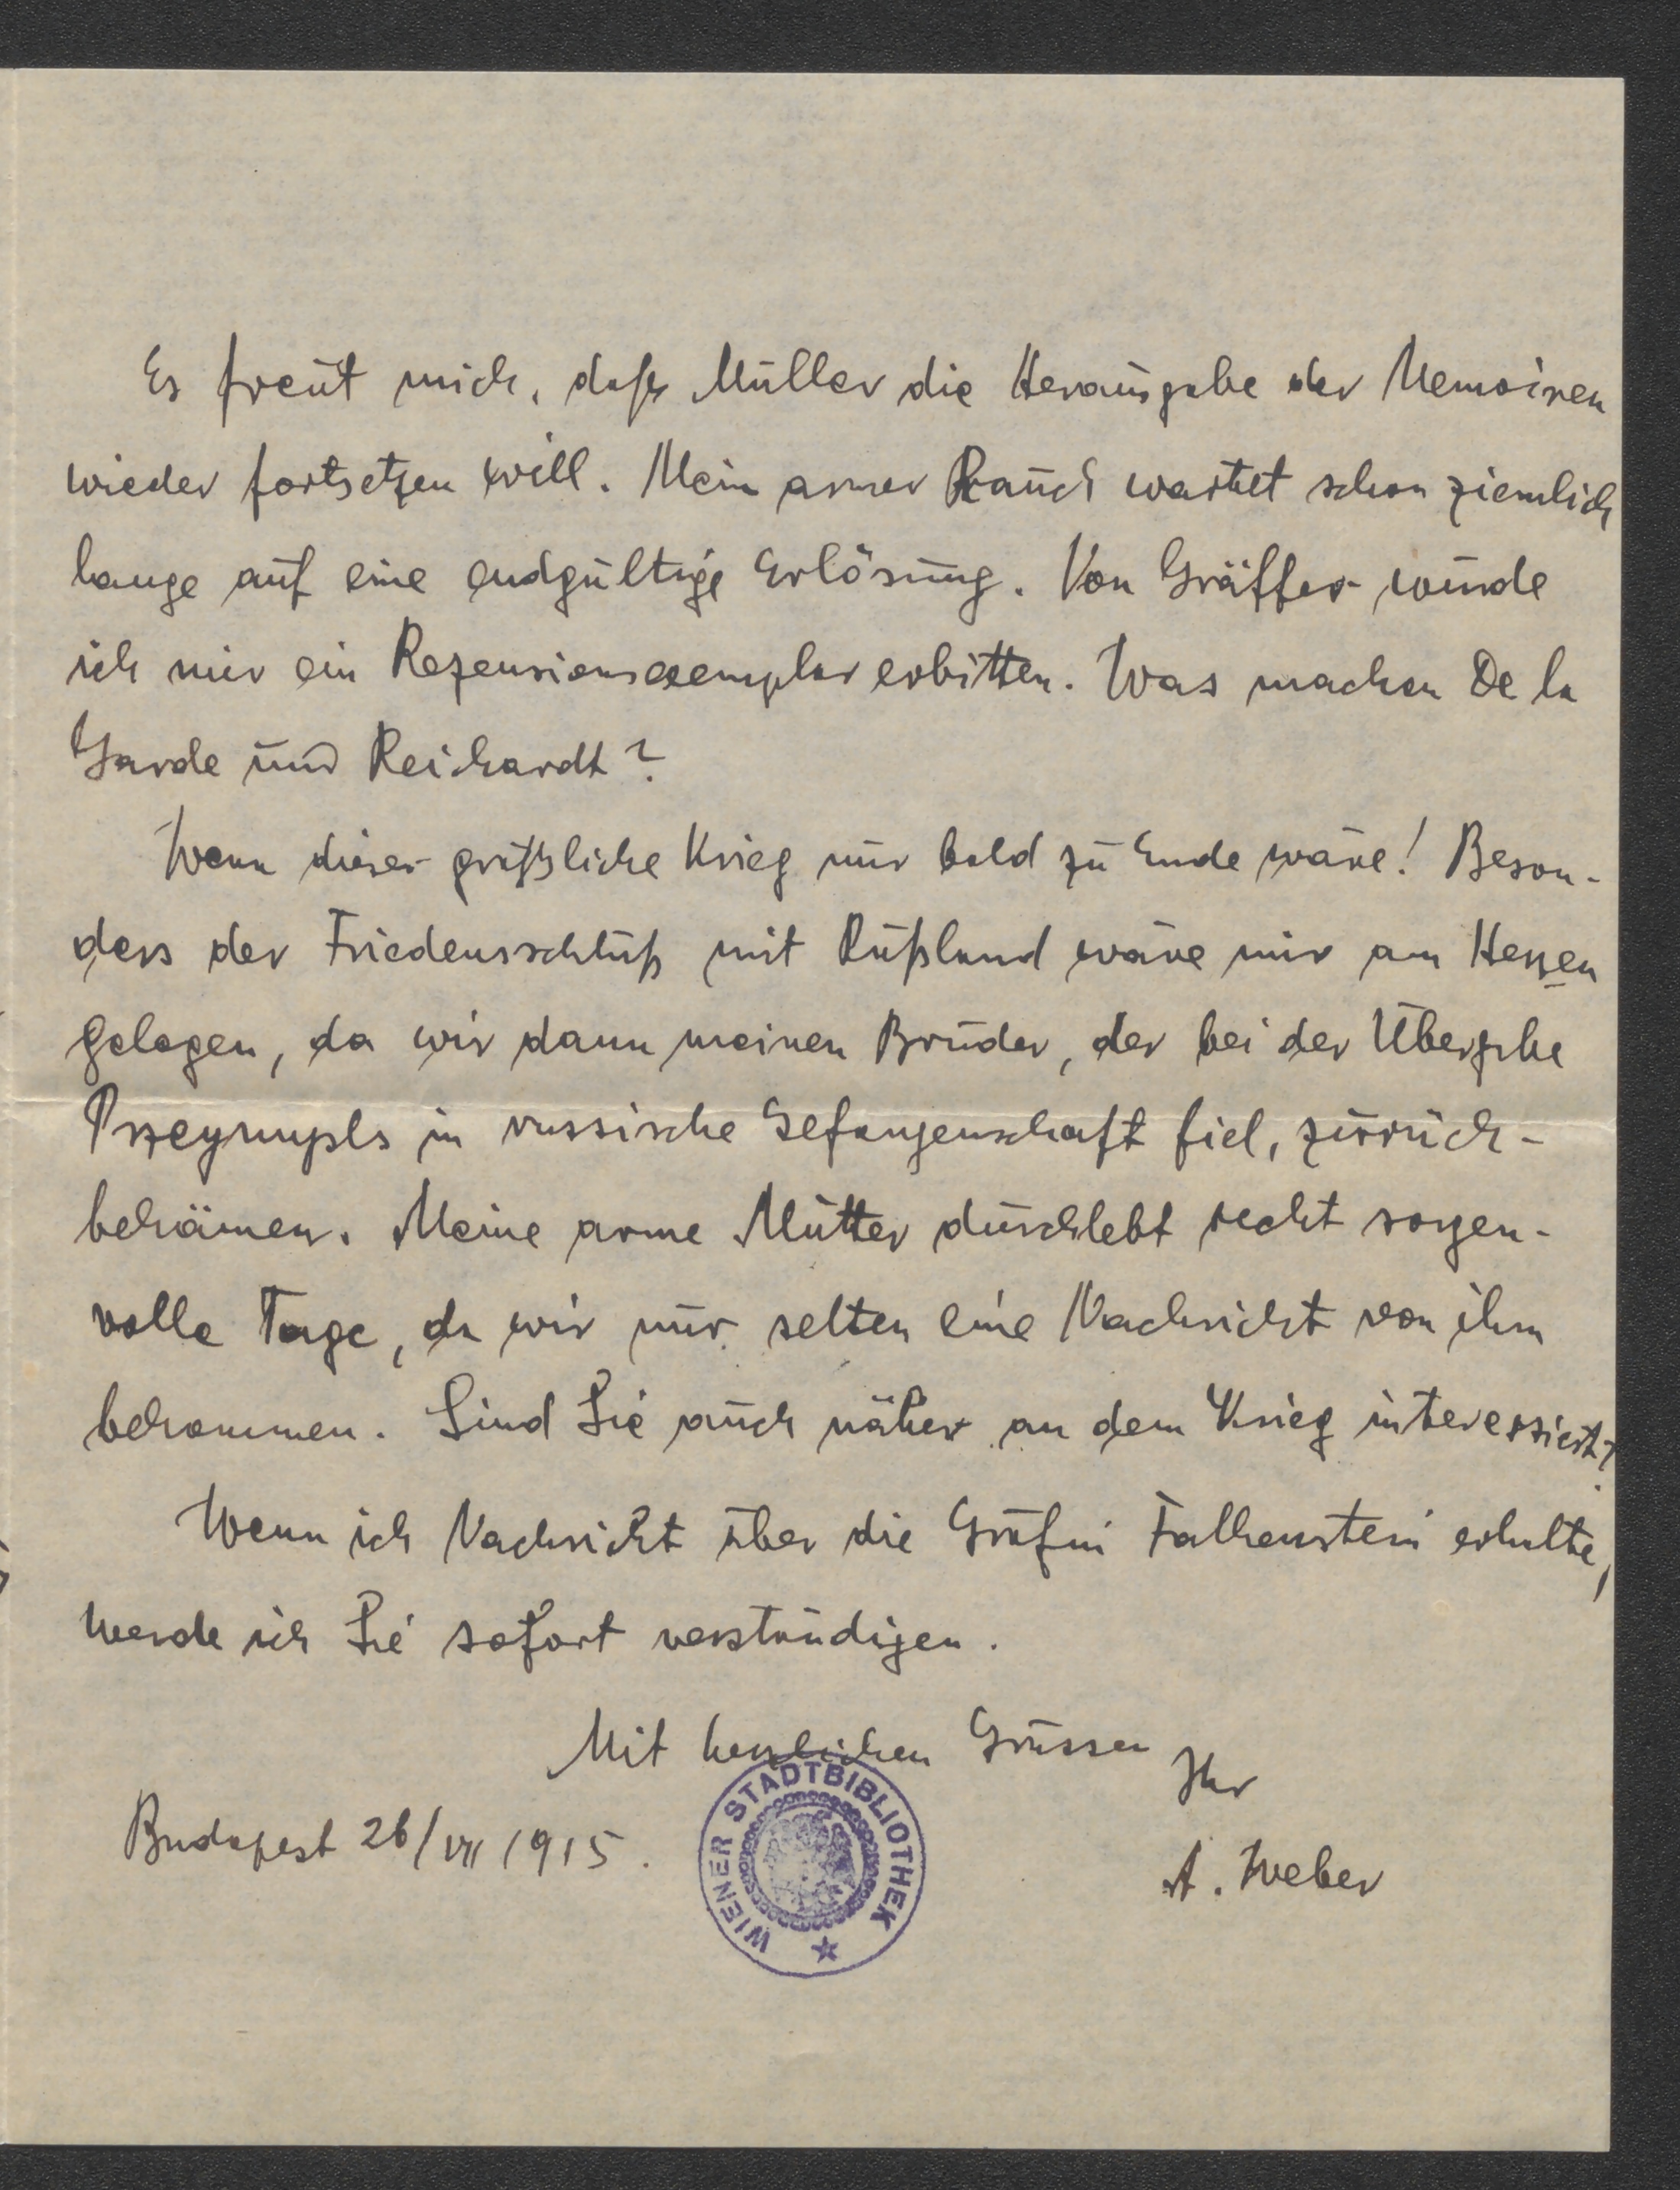 Es freut mich, daß Müller die Herausgabe der Memoiren
wieder fortsetzen will. Mein armer Rauch wartet schon ziemlich
lange auf eine endgültige Erlösung. Von Gräffer würde
ich mir ein Rezensionsexemplar erbitten. Was machen De la
Garde und Reichardt?
Wenn dieser gräßliche Krieg nur bald zu Ende wäre! Beson-
ders der Friedensschluß mit Rußland wäre mir am Herzen
gelegen, da wir dann meinen Bruder, der bei der Übergabe
Przeymysls in russische Gefangenschaft fiel, zurück-
bekämen. Meine arme Mutter durchlebt recht sorgen-
volle Tage, da wir nur selten eine Nachricht von ihm
bekommen. Sind Sie auch näher an dem Krieg interessiert?
Wenn ich Nachricht über die Gräfin Falkenstein erhalte,
werde ich Sie sofort verständigen.
Mit herzlichen Grüssen
Ihr
Budapest 26/VII 1915.
A. Weber
WIENER STADTBIBLIOTHEK